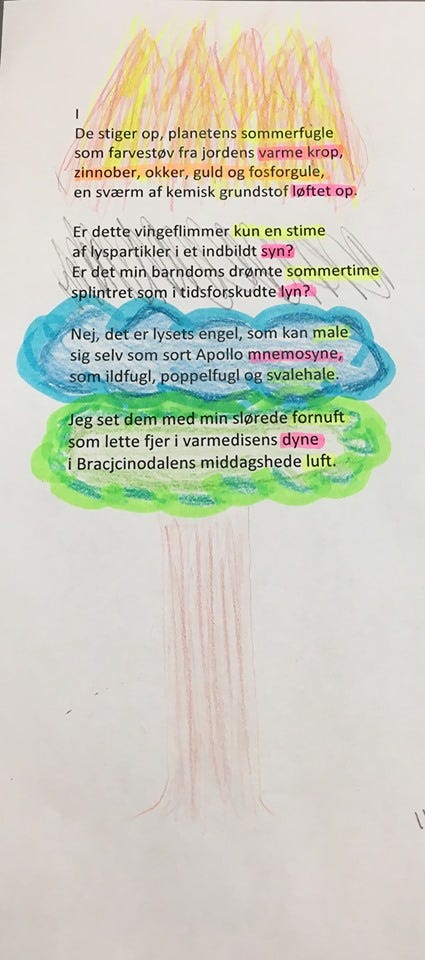 I
De stiger op, planetens sommerfugle
som farvestøv fra jordens varme krop,
zinnober, okker, guld og fosforgule,
en sværm af kemisk grundstof løftet op.
Er dette vingeflimmer kun en stime
af lyspartikler i et indbildt syn?
Er det min barndoms drømte sommertime
splintret som i tidsforskudte lyn?
Nej, det er lysets engel, som kan male
sig selv som sort Apollo mnemosyne,
som ildfugl, poppelfugl og svalehale.
Jeg set dem med min slørede fornuft
som lette fjer i varmedisens dyne
i Bracjcinodalens middagshede luft.